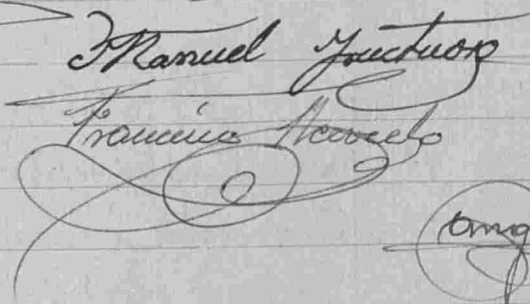 Manuel Fructuoso
Francisco Acevedo